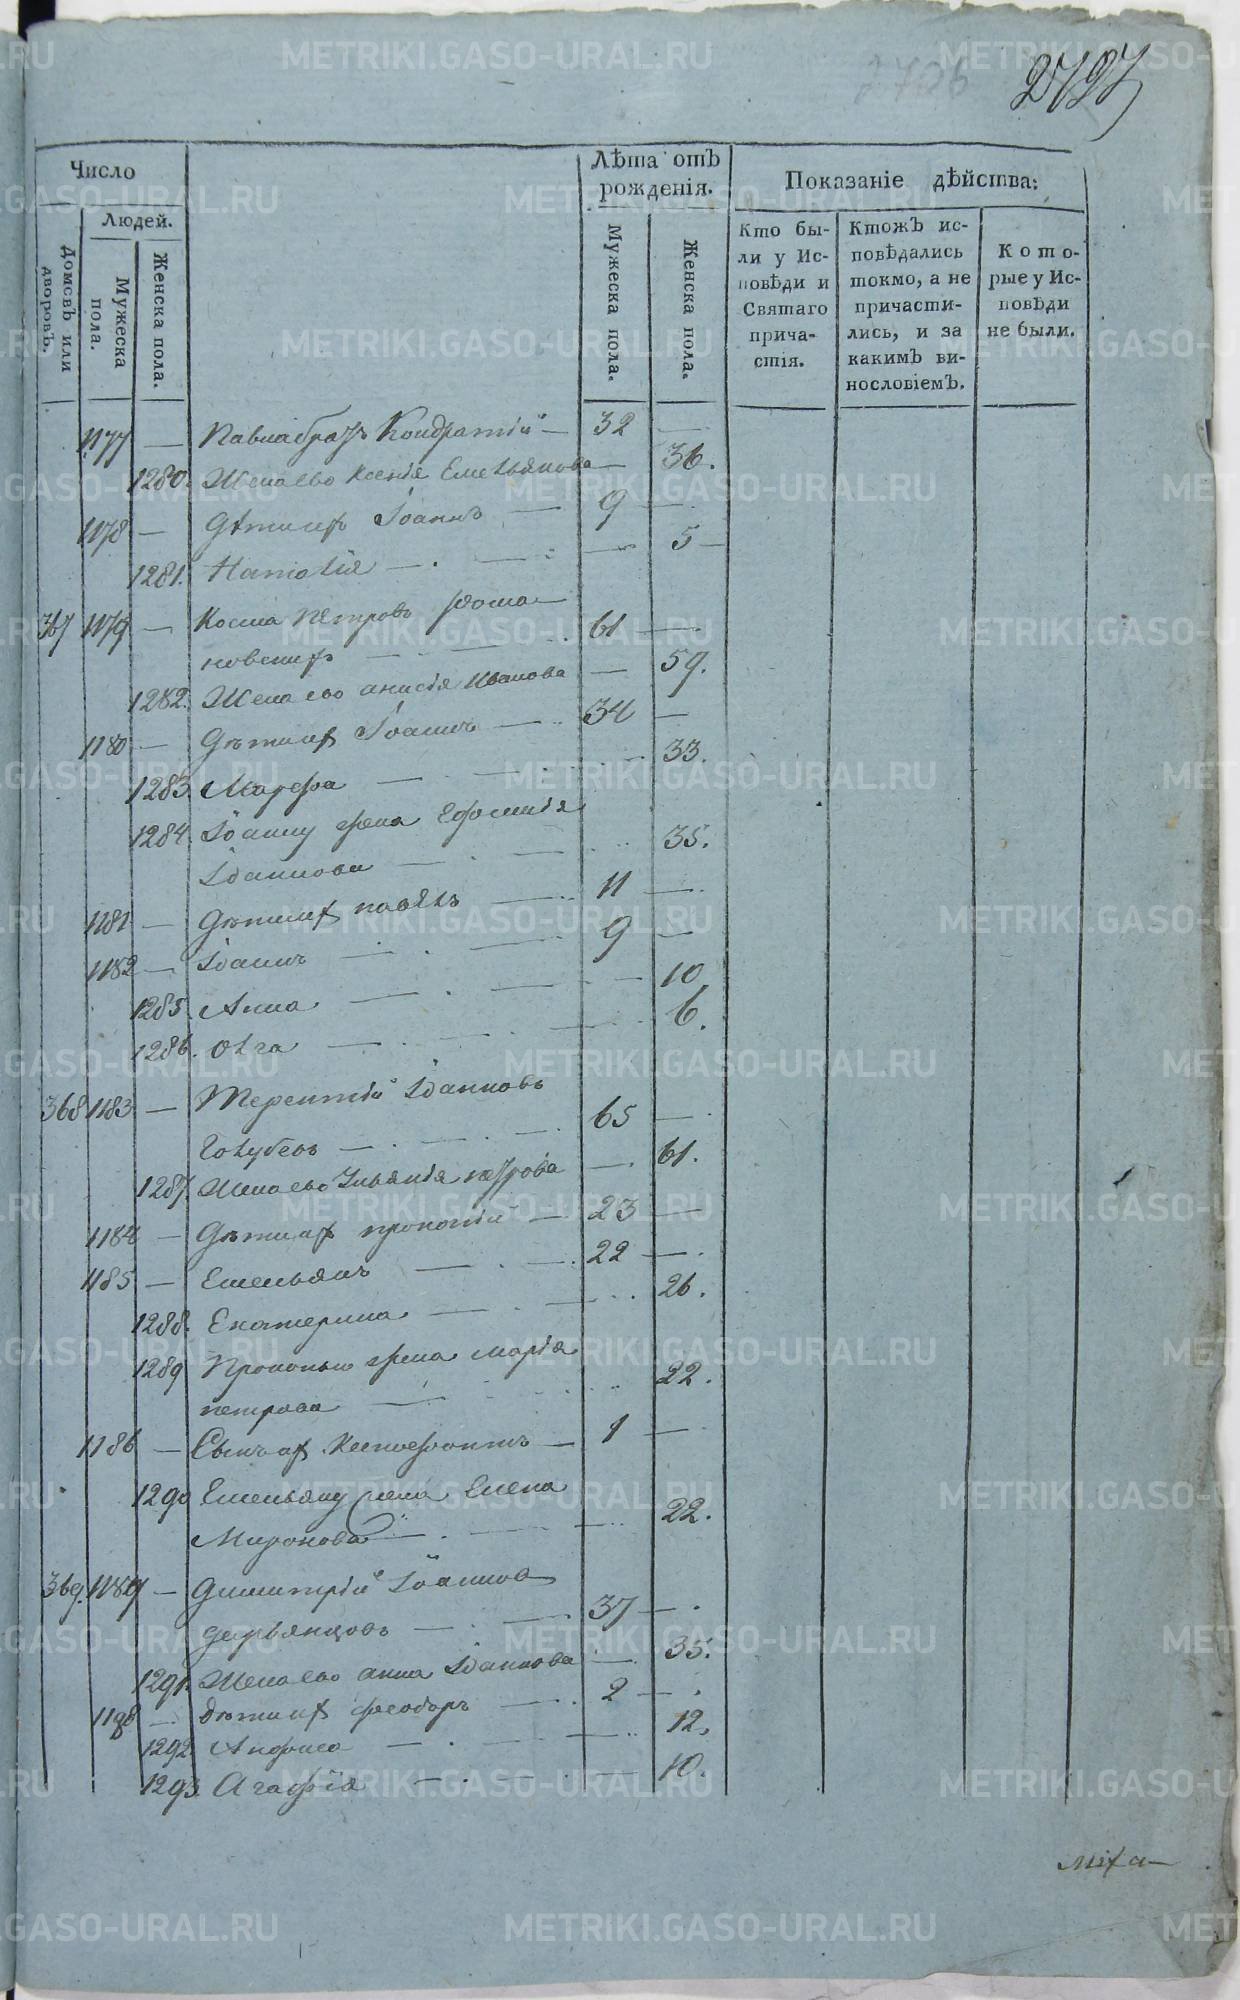 2706 2727
Число
Людей.
Домовъ или дворовъ.
Мужеска пола.
Женска пола.
Лѣта отъ рожденія.
Мужеска пола.
Женска пола.
Показаніе дѣйства:
Кто были у Исповѣди и Святаго причастія.
Ктожъ исповѣдались токмо, а не причастились, и за какимъ винословіемъ.
Которые у Исповѣди не были.
1177 — Павла братъ Кондратій — 32 —
1280. Жена ево Ксенія Емельянова — 36.
1178 — Дѣти ихъ Іоаннъ — 9 —
1281. Наталія — 5 —
367 1179 — Косма Петровъ Рома-
новских — 61 —
1282. Жена ево Анисія Иванова — 59.
1180 — Дѣти их Іоаннъ — 34 —
1283. Марфа — 33.
1284. Іоанну жена Ефросинія
Іоаннова — 35.
1181 — Дѣти их Павелъ — 11 —
1182 — Іоаннъ — 9 —
1285. Анна — 10
1286. Олга — 6.
368 1183 — Терентій Іоанновъ
Голубевъ — 65 —
1287. Жена ево Ульянія Петрова — 61.
1184 — Дѣти их Прокопій — 23 —
1185 — Емельянъ — 22 —
1288. Екатерина — 26.
1289 Прокопью жена Марія
Петрова — 22.
1186 — Сынъ их Ксенофонтъ — 1 —
1290 Емельяну жена Елена
Миронова — 22.
369. 1187 — Димитрій Іоаннов
Дерьянцовъ — 37 —
1291. Жена ево Анна Іоаннова — 35.
1198 — Дѣти их Феодоръ — 2 —
1292. Анфиса — 12.
1293. Агафія — 10.
Миха—